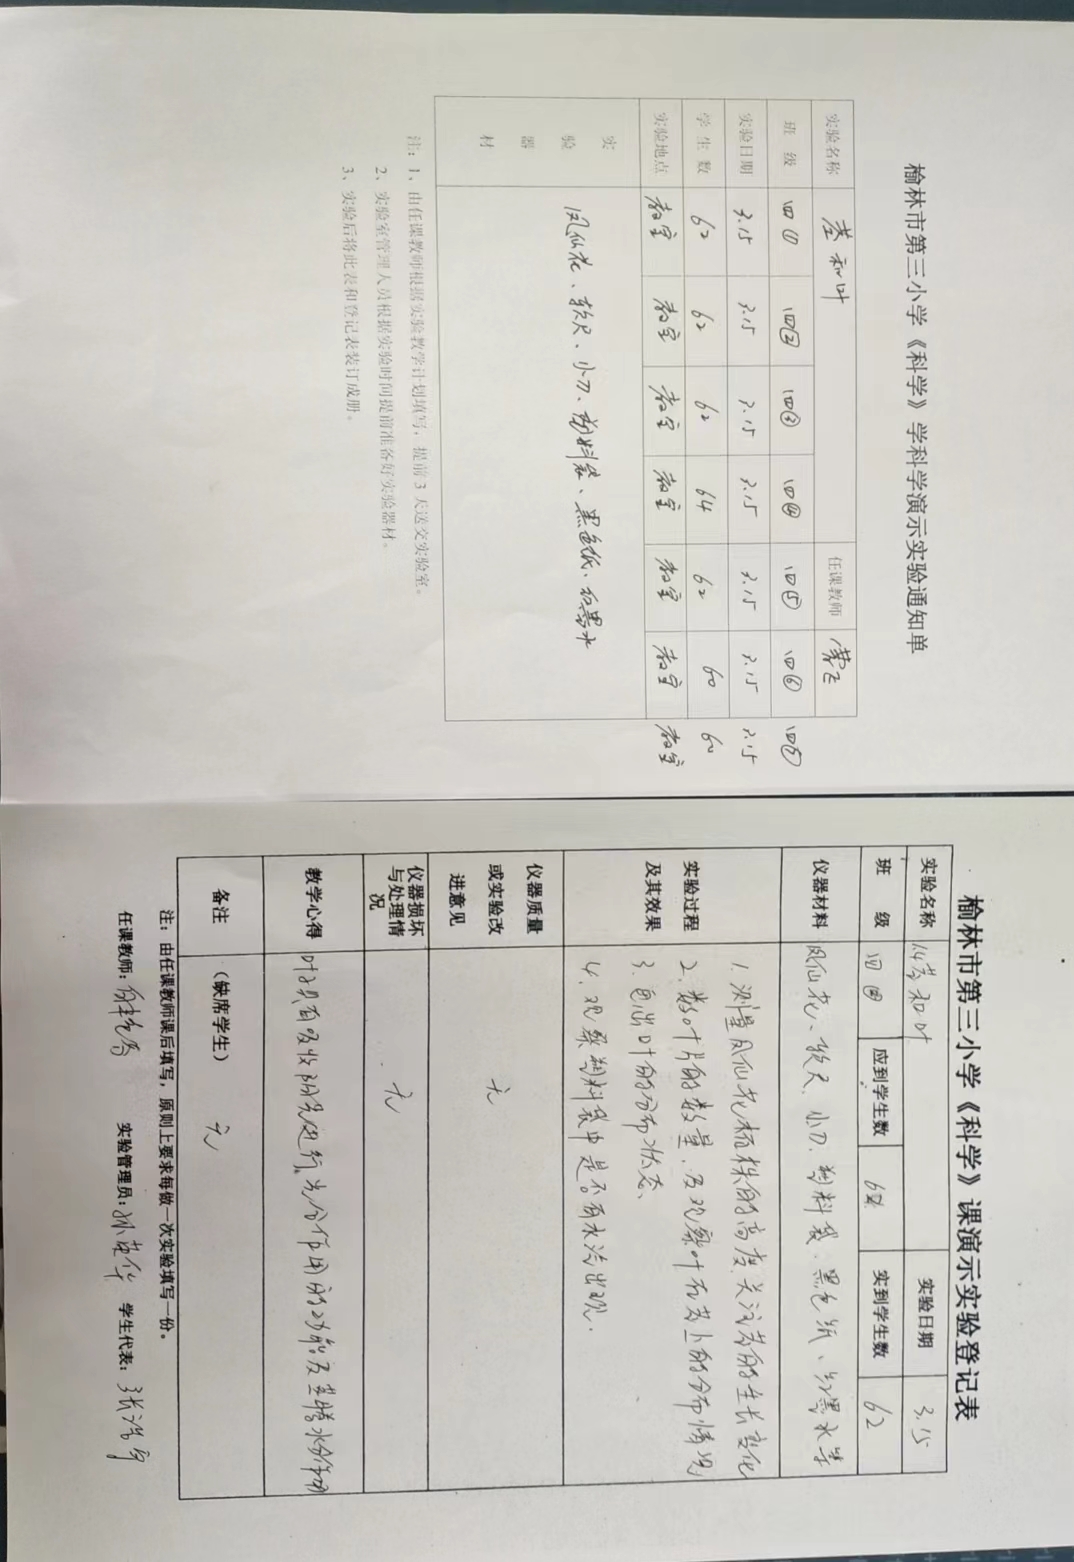 榆林市第三小学《科学》学科学演示实验通知单
实验名称 茎和叶 任课教师
班 级 四① 四② 四③ 四④ 四⑤ 四⑥
实验日期 3.15 3.15 3.15 3.15 3.15 3.15 3.15
学生数 62 62 62 64 62 60 60
实验地点 教室 教室 教室 教室 教室 教室 教室
实验器材 凤仙花、软尺、小刀、塑料袋、黑色纸、红墨水
注：1、由任课教师根据实验教学计划填写，提前3天送交实验室。
2、实验室管理人员根据实验时间提前准备好实验器材。
3、实验后将此表和登记表装订成册。
榆林市第三小学《科学》课演示实验登记表
实验名称 1.4茎和叶 实验日期 3.15
班 级 四 应到学生数 实到学生数 62
仪器材料 凤仙花、软尺、小刀、塑料袋、黑色纸、红墨水等
实验过程及其效果 1.测量凤仙花植株的高度,关注茎的生长变化
2.数叶片的数量,及观察叶在茎上的分布情况
3.画出叶的分布状态、
4.观察塑料袋中是否有水汽出现.
仪器质量或实验改进意见 无
仪器损坏与处理情况 无
教学心得 叶子具有吸收阳光进行光合作用的功能及蒸腾水分作用
备注 (缺席学生) 无
注：由任课教师课后填写，原则上要求每做一次实验填写一份。
任课教师: 实验管理员: 学生代表: